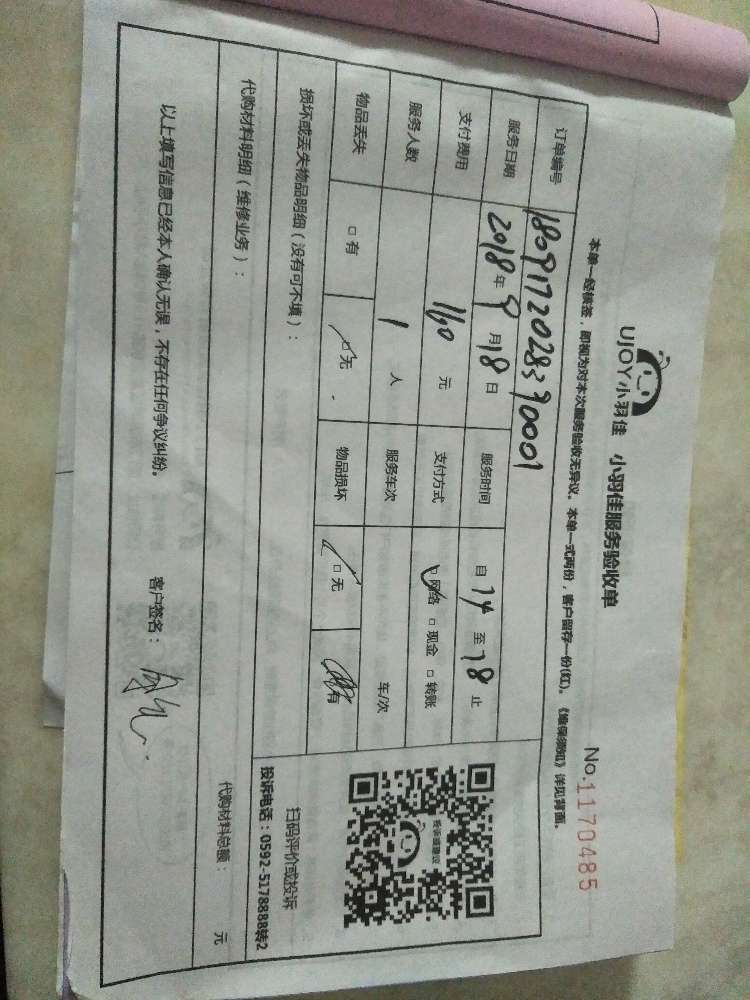 UJOY小羽佳 小羽佳服务验收单
No.1170485
本单一经核签，即视为对本次服务验收无异议。本单一式两份，客户留存一份(红)。《维保须知》详见背面。
订单编号 1809172028390001
服务日期 2018年9月18日 服务时间 自14至18止
支付费用 160元 支付方式 ☑网络 □现金 □转账
服务人数 1人 服务车次 车/次
物品丢失 □有 ☑无 物品损坏 ☑无 □有
损坏或丢失物品明细（没有可不填）：
扫码评价或投诉
投诉电话：0592-5178888转2
代购材料明细（维修业务）：
代购材料总额： 元
以上填写信息已经本人确认无误，不存在任何争议纠纷。 客户签名：